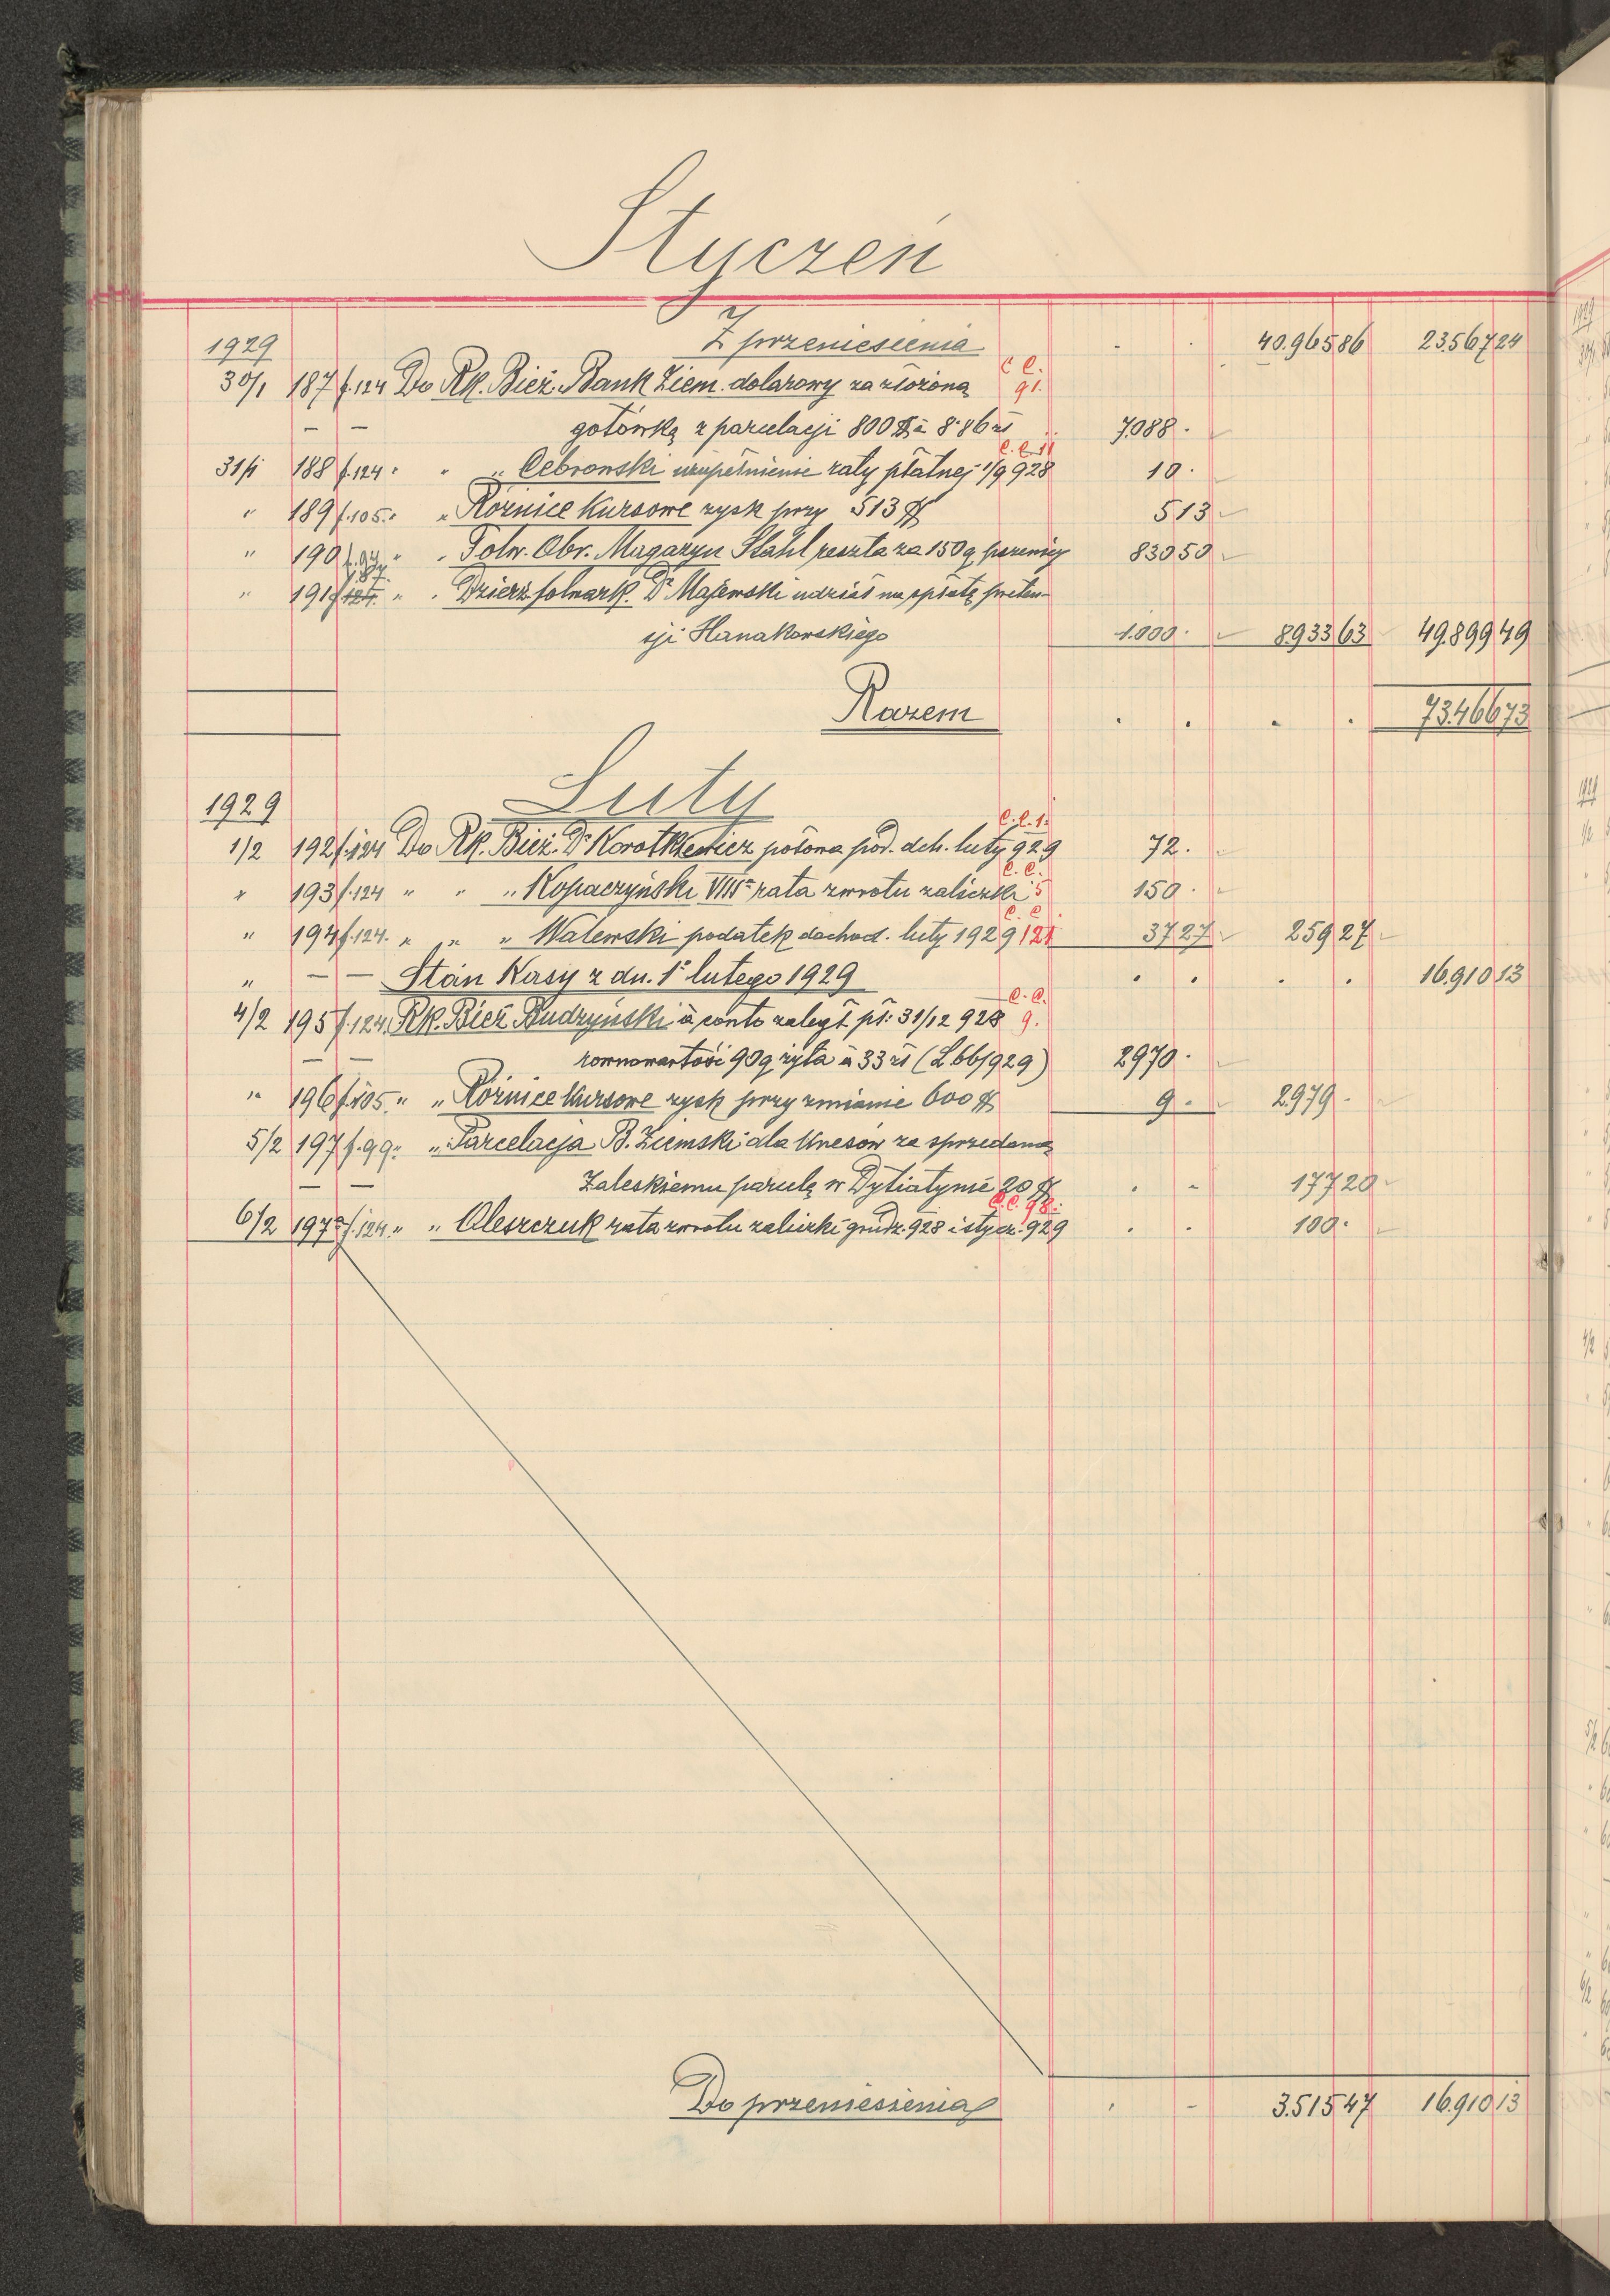 Styczeń
1929 Z przeniesienia . . 40.965 86 23.567 24
30/1 187 f.124 Do Rk. Bież. Bank Ziem. dolarowy za złożoną C C. 91.
— — gotówką z parcelacji 800 $ à 8·86 zł 7.088 ·
31/1 188 f.124 " " " Cebronski uzupełnienie raty płatnej 1/9 928 C. C. 11 10 ·
" 189 f.105 " " Różnice Kursowe zysk przy 513 $ 5 13
" 190 f.94 " " Folw. Obr. Magazyn Stahl reszta za 150 q pszenicy 830 50
" 191 f.124 87. " " Dzierż. folwark. Dr Majewski udział na spłatę preten-
sji Hanakowskiego 1.000 · 8933 63 49.899 49
Razem . . . . 73.466 73
Luty
1929
1/2 192 f.124 Do Rk. Bież. Dr Korotkiewicz połowa pod. dch. luty 929 C. C. 1. 72 .
" 193 f.124 " " " Kopaczyński VIIIa rata zwrotu zaliczki C. C. 5 150 ·
" 194 f.124. " " " Walewski podatek dochod. luty 1929 C. C 121 37 27 259 27
" — — Stan Kasy z dn. 1º lutego 1929 . . . . 16.910 13
4/2 195 f.124. Rk. Bież Budzyński à conto zaległ. pł: 31/12 928 C. C. 9.
— — równowartości 90 q żyta à 33 zł (L 66/929) 2970 ·
" 196 f.105 " " Różnice Kursowe zysk przy zmianie 600 $ 9 · 2.979 ·
5/2 197 f.99 " " Parcelacja B. Ziemski dla Unesów za sprzedaną
— — Zaleskiemu parcelę w Dytiatynie 20 $ . - 177 20
6/2 197a f.124 " " Oleszczuk rata zwrotu zaliczki grudz. 928 i stycz. 929 C. C. 98. . . 100 ·
Do przeniesienia . - 3.515 47 16.910 13